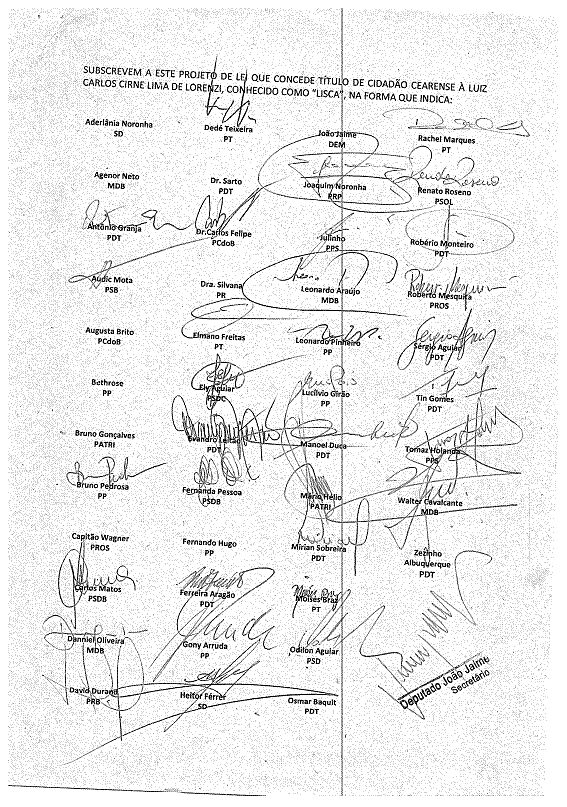 SUBSCREVEM A ESTE PROJETO DE LEI QUE CONCEDE TÍTULO DE CIDADÃO CEARENSE À LUIZ
CARLOS CIRNE LIMA DE LORENZI, CONHECIDO COMO "LISCA", NA FORMA QUE INDICA:
Aderlânia Noronha
SD
Dedé Teixeira
PT
João Jaime
DEM
Rachel Marques
PT
Agenor Neto
MDB
Dr. Sarto
PDT
Joaquim Noronha
PRP
Renato Roseno
PSOL
Antônio Granja
PDT
Dr.Carlos Felipe
PCdoB
Julinho
PPS
Robério Monteiro
PDT
Audic Mota
PSB
Dra. Silvana
PR
Leonardo Araújo
MDB
Roberto Mesquita
PROS
Augusta Brito
PCdoB
Elmano Freitas
PT
Leonardo Pinheiro
PP
Sérgio Aguiar
PDT
Bethrose
PP
Ely Aguiar
PSDC
Lucílvio Girão
PP
Tin Gomes
PDT
Bruno Gonçalves
PATRI
Evandro Leitão
PDT
Manoel Duca
PDT
Tomaz Holanda
PPS
Bruno Pedrosa
PP
Fernanda Pessoa
PSDB
Mário Hélio
PATRI
Walter Cavalcante
MDB
Capitão Wagner
PROS
Fernando Hugo
PP
Mirian Sobreira
PDT
Zezinho
Albuquerque
PDT
Carlos Matos
PSDB
Ferreira Aragão
PDT
Moisés Braz
PT
Danniel Oliveira
MDB
Gony Arruda
PP
Odilon Aguiar
PSD
Deputado João Jaime
Secretário
David Durand
PRB
Heitor Férrer
SD
Osmar Baquit
PDT